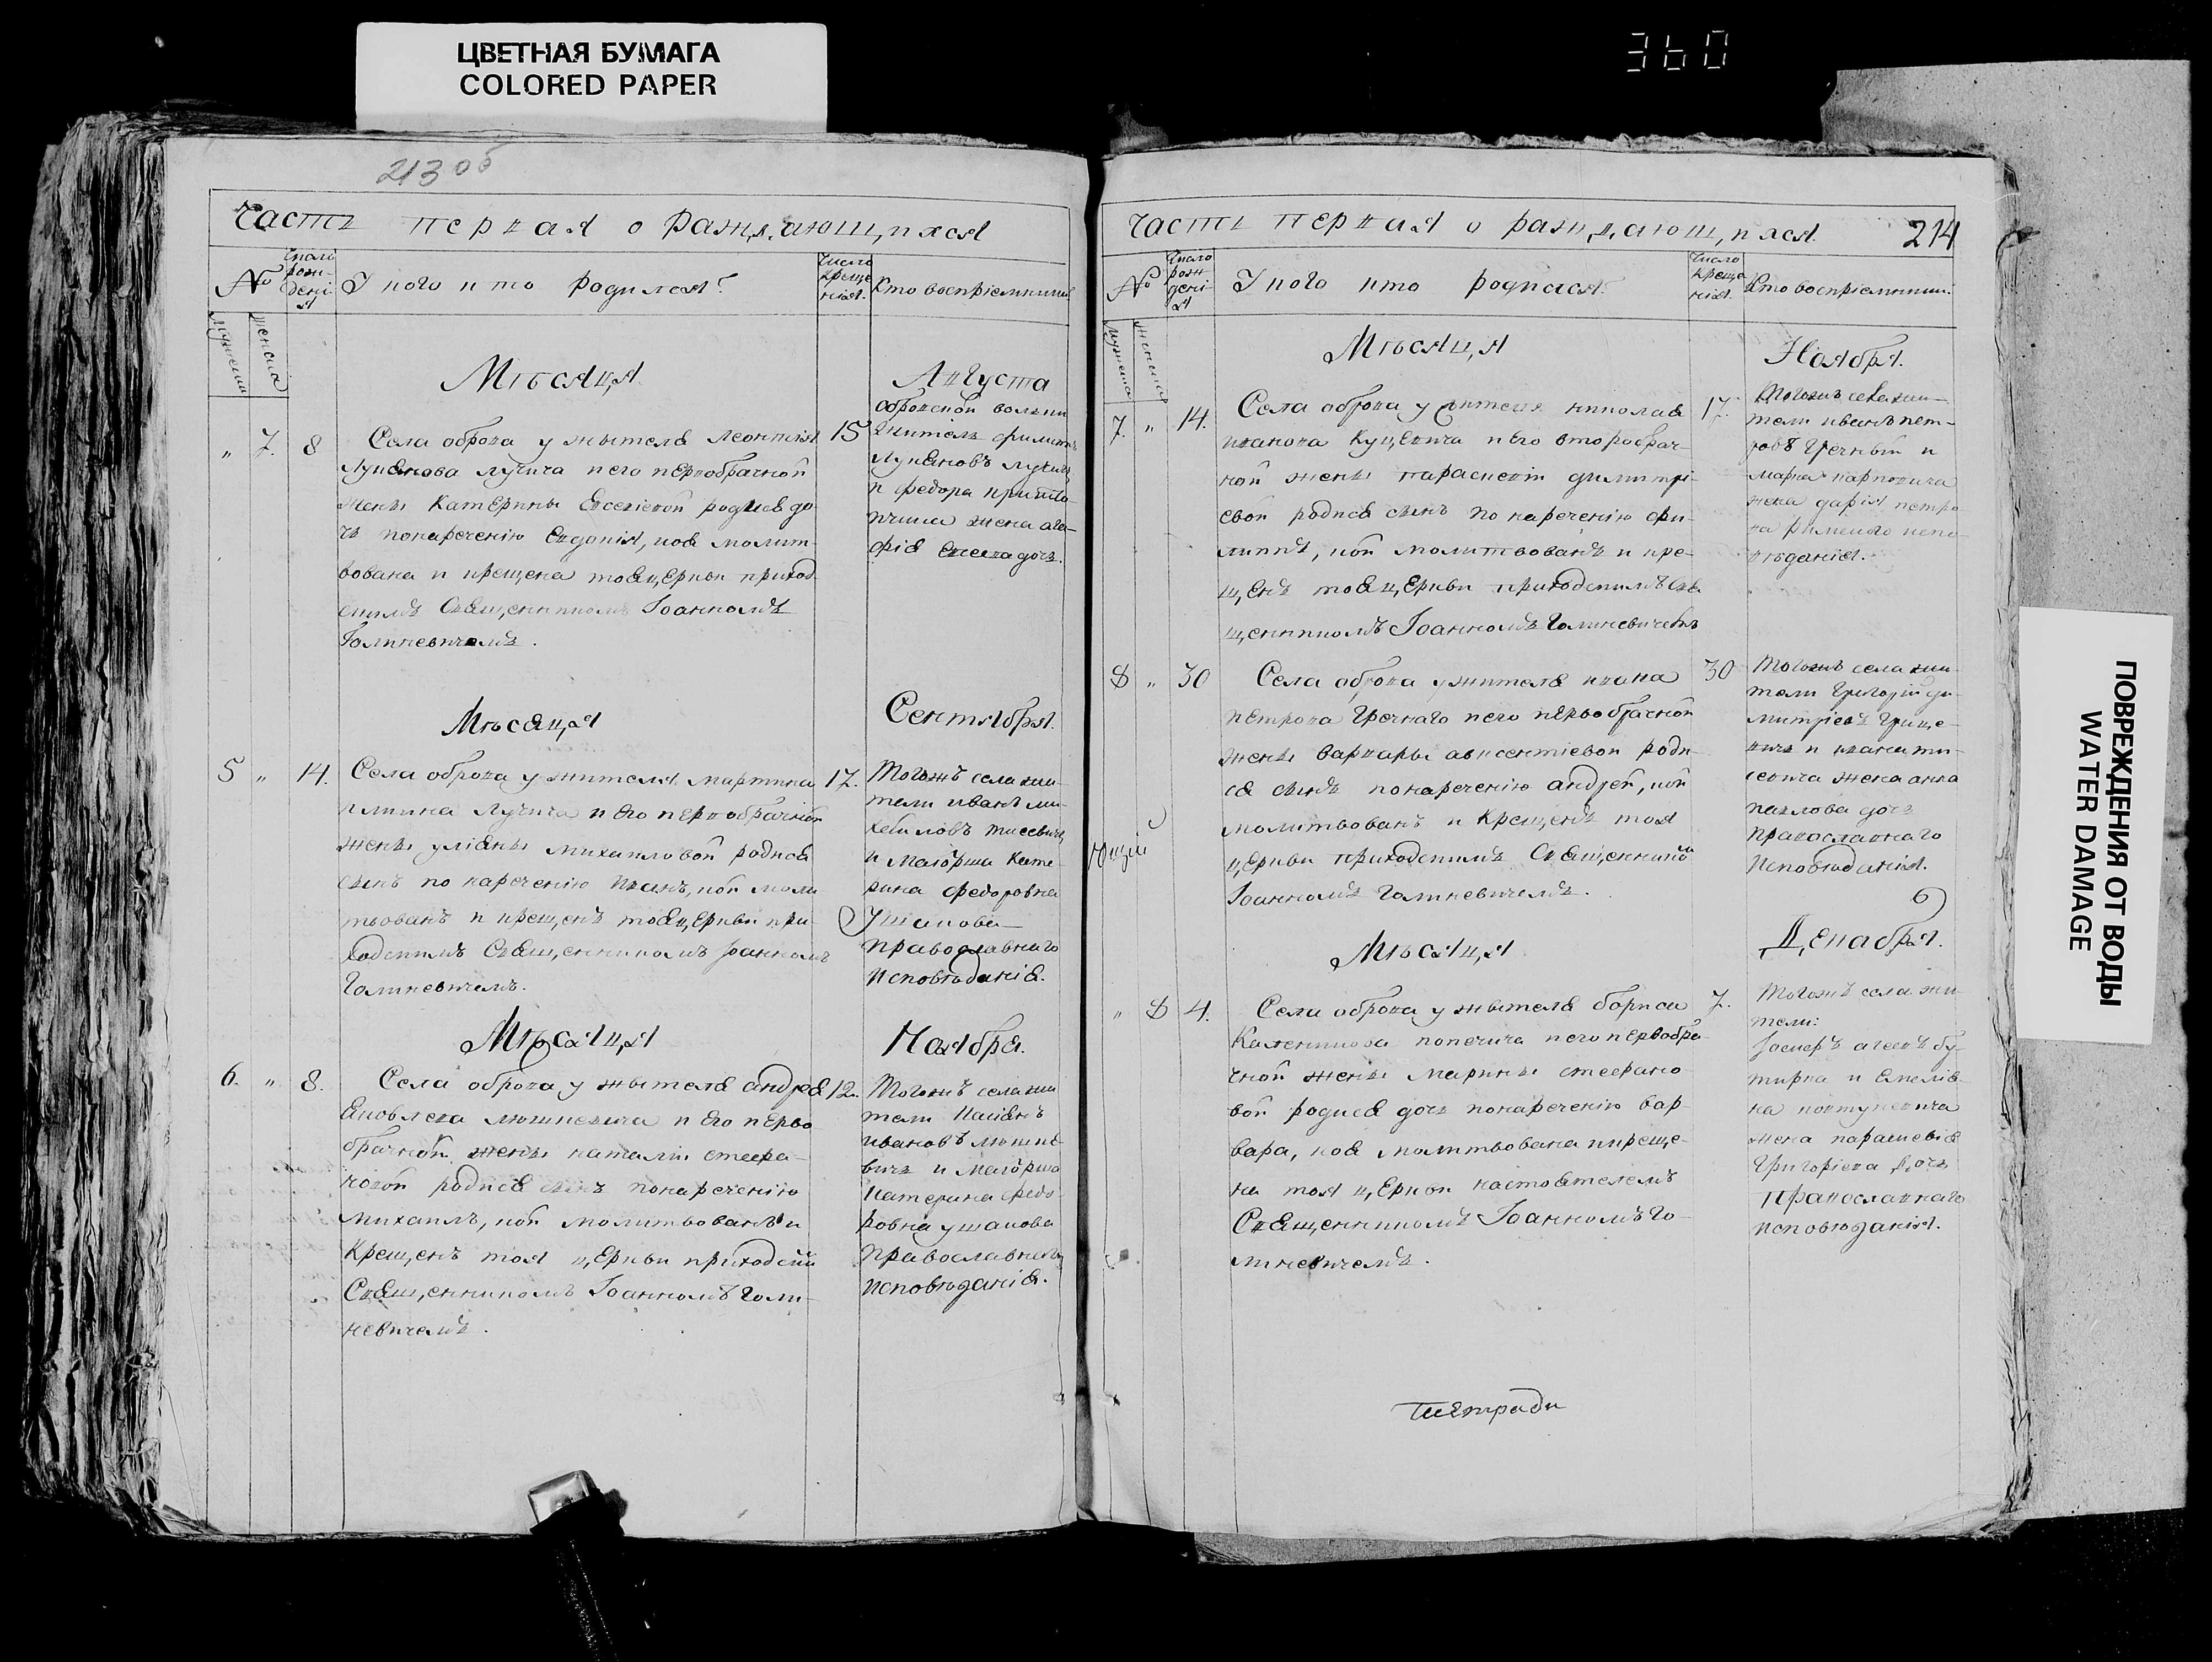 ЦВЕТНАЯ БУМАГА
COLORED PAPER
360
213 об
Часть первая о раждающихся
№
Число рожденія
У кого кто родился?
Число крещенія.
Кто воспріемники
мужеска
женска
Мѣсяца
Августа
" 7. 8
Села оброва у жытеля Леонтія
Лукянова лучича и его первобрачной
жены Катерины Евсеевой родися до
чь понареченію Евдокія, коя молит-
вована и крещена тоя церкви приход
скимъ Священникомъ Іоанномъ
Голиневичемъ.
15
обровской волости
жители филипъ
Лукяновъ лучичъ
и федора
жена
Евсеева дочь.
Мѣсяца
Сентября.
5 " 14.
Села оброва у жителя мартина
илиина лучича и его первобрачной
жены уліяны михаиловой родися
сынъ по нареченію Иванъ, кой моли
твованъ и крещенъ тоя церкви при-
ходскимъ Священникомъ Іоанномъ
Голиневичемъ.
17.
Тогожъ села жи-
тели иванъ ми-
хаиловъ
и Маіорша Кате-
рина федоровна
Ушакова
православнаго
исповѣданія.
Мѣсяца
Ноября.
6. " 8.
Села оброва у жытеля андрея
Яковлева люшкевича и его перво
брачной жены наталіи стефа-
новой родися сынъ понареченію
михаилъ, кой молитвованъ и
Крещенъ тоя церкви приходскій
Священникомъ Іоанномъ Голи-
невичемъ.
12.
Тогожъ села жи
тели
ивановъ люшке
вичъ и маіорша
катерина федо-
ровна ушакова
православнаго
исповѣданія.
Часть первая о раждающихся.
214
№
Число рожденія
У кого кто родился
Число крещенія.
Кто воспріемники.
мужеска
женска
Мѣсяца
Ноября.
7. " 14.
Села оброва у жителя николая
иванова Куцевича и его второбрач-
ной жены параскевіи димитрі-
евой родися сынъ по нареченію фи-
липпъ, кой молитвованъ и кре-
щенъ тоя церкви приходскимъ Свя
щенникомъ Іоанномъ Голиневичемъ
17.
Тогожъ села жи-
тели иванъ пет-
ровъ Гречный и
марка карповича
жена дарія петро
ва римскаго испо-
вѣданія.
8 " 30
Села оброва у жителя ивана
петрова Гречнаго и его первобрачной
жены варвары авксентіевой роди-
ся сынъ понареченію андрей, кой
молитвованъ и Крещенъ тоя
церкви приходскимъ Священникомъ
Іоанномъ Голиневичемъ.
30
Тогожъ села жи-
тели Григорій ди-
митріевъ Грице-
вичъ и
жена анна
павлова дочь
православнаго
исповѣданія.
Мѣсяца
Декабря.
" 8 4.
Села оброва у жытеля бориса
Каленикова попечича и его первобра-
чной жены Марины стефано-
вой родися дочь понареченію вар-
вара, коя молитвована и креще-
на тоя церкви настоятелемъ
Священникомъ Іоанномъ Го-
линевичемъ.
7.
Тогожъ села жи-
тели:
жена параскевія
Григоріева дочь
православнаго
исповѣданія.
тетради
ПОВРЕЖДЕНИЯ ОТ ВОДЫ
WATER DAMAGE